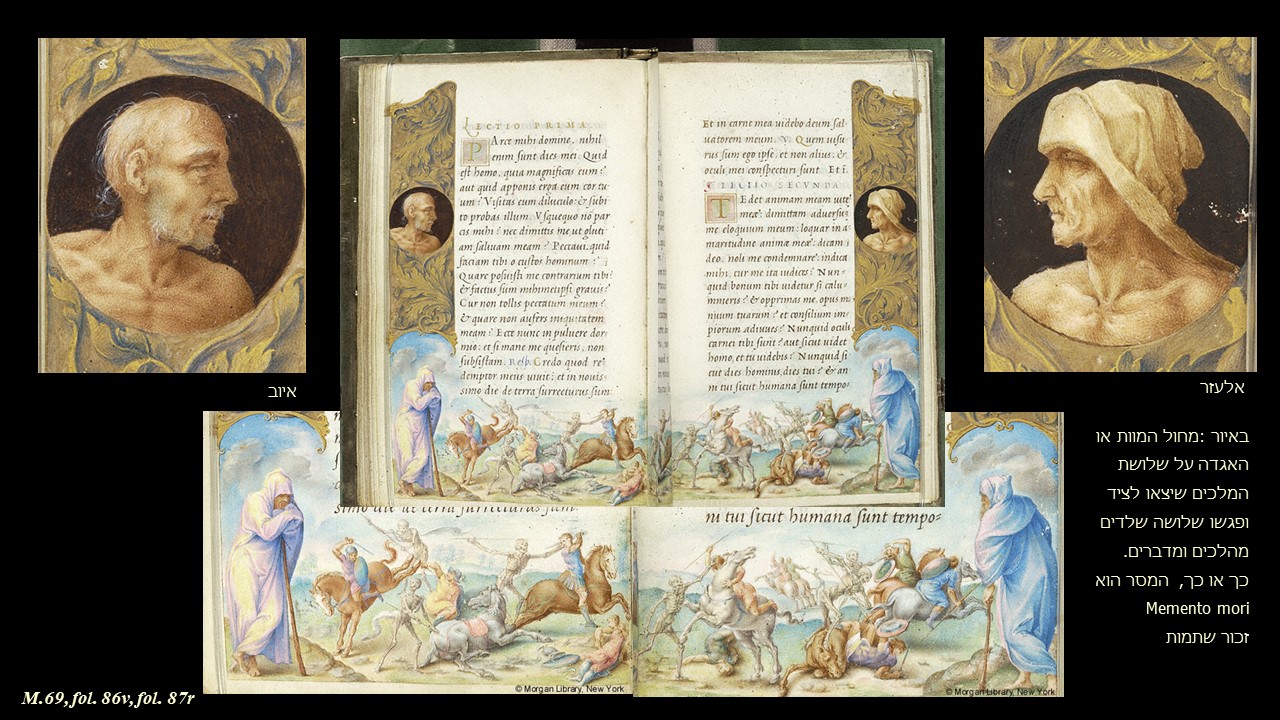 LECTIO PRIMA.
PArce mihi domine, nihil
enim sunt dies mei. Quid
est homo, quia magnificas eum?
aut quid apponis erga eum cor tu-
um? Visitas eum diluculo: & subi
to probas illum. Vsquequo nō par
cis mihi? nec dimittis me ut gluti
am saliuam meam? Peccaui: quid
faciam tibi o custos hominum?
Quare posuisti me contrarium tibi
& factus sum mihimetipsi grauis?
Cur non tollis peccatum meum?
& quare non aufers iniquitatem
meam? Ecce nunc in puluere dor-
mio: et si mane me quesieris, non
subsistam. Resp. Credo quod re-
demptor meus uiuit: et in nouis-
simo die de terra surrecturus sum
Et in carne mea uidebo deum sal-
uatorem meum. V. Quem uisu-
rus sum ego ipse, et non alius: &
oculi mei conspecturi sunt. Et i.
LECTIO SECVNDA
TEdet animam meam uite
meæ: dimittam aduersus
me eloquium meum: loquar in a-
maritudine animæ meæ: dicam
deo: noli me condemnare: indica
mihi, cur me ita iudices? Nun-
quid bonum tibi uidetur si calu-
mnieris? & opprimas me, opus ma
nuum tuarum? et consilium im-
piorum adiuues? Nunquid oculi
carnei tibi sunt? aut sicut uidet
homo, et tu uidebis? Nunquid si
cut dies hominis, dies tui? & an
ni tui sicut humana sunt tempo-
איוב
אלעזר
באיור :מחול המוות או
האגדה על שלושת
המלכים שיצאו לציד
ופגשו שלושה שלדים
מהלכים ומדברים.
כך או כך, המסר הוא
Memento mori
זכור שתמות
simo die de terra surrecturus sum
ni tui sicut humana sunt tempo-
© Morgan Library, New York
© Morgan Library, New York
M.69, fol. 86v, fol. 87r